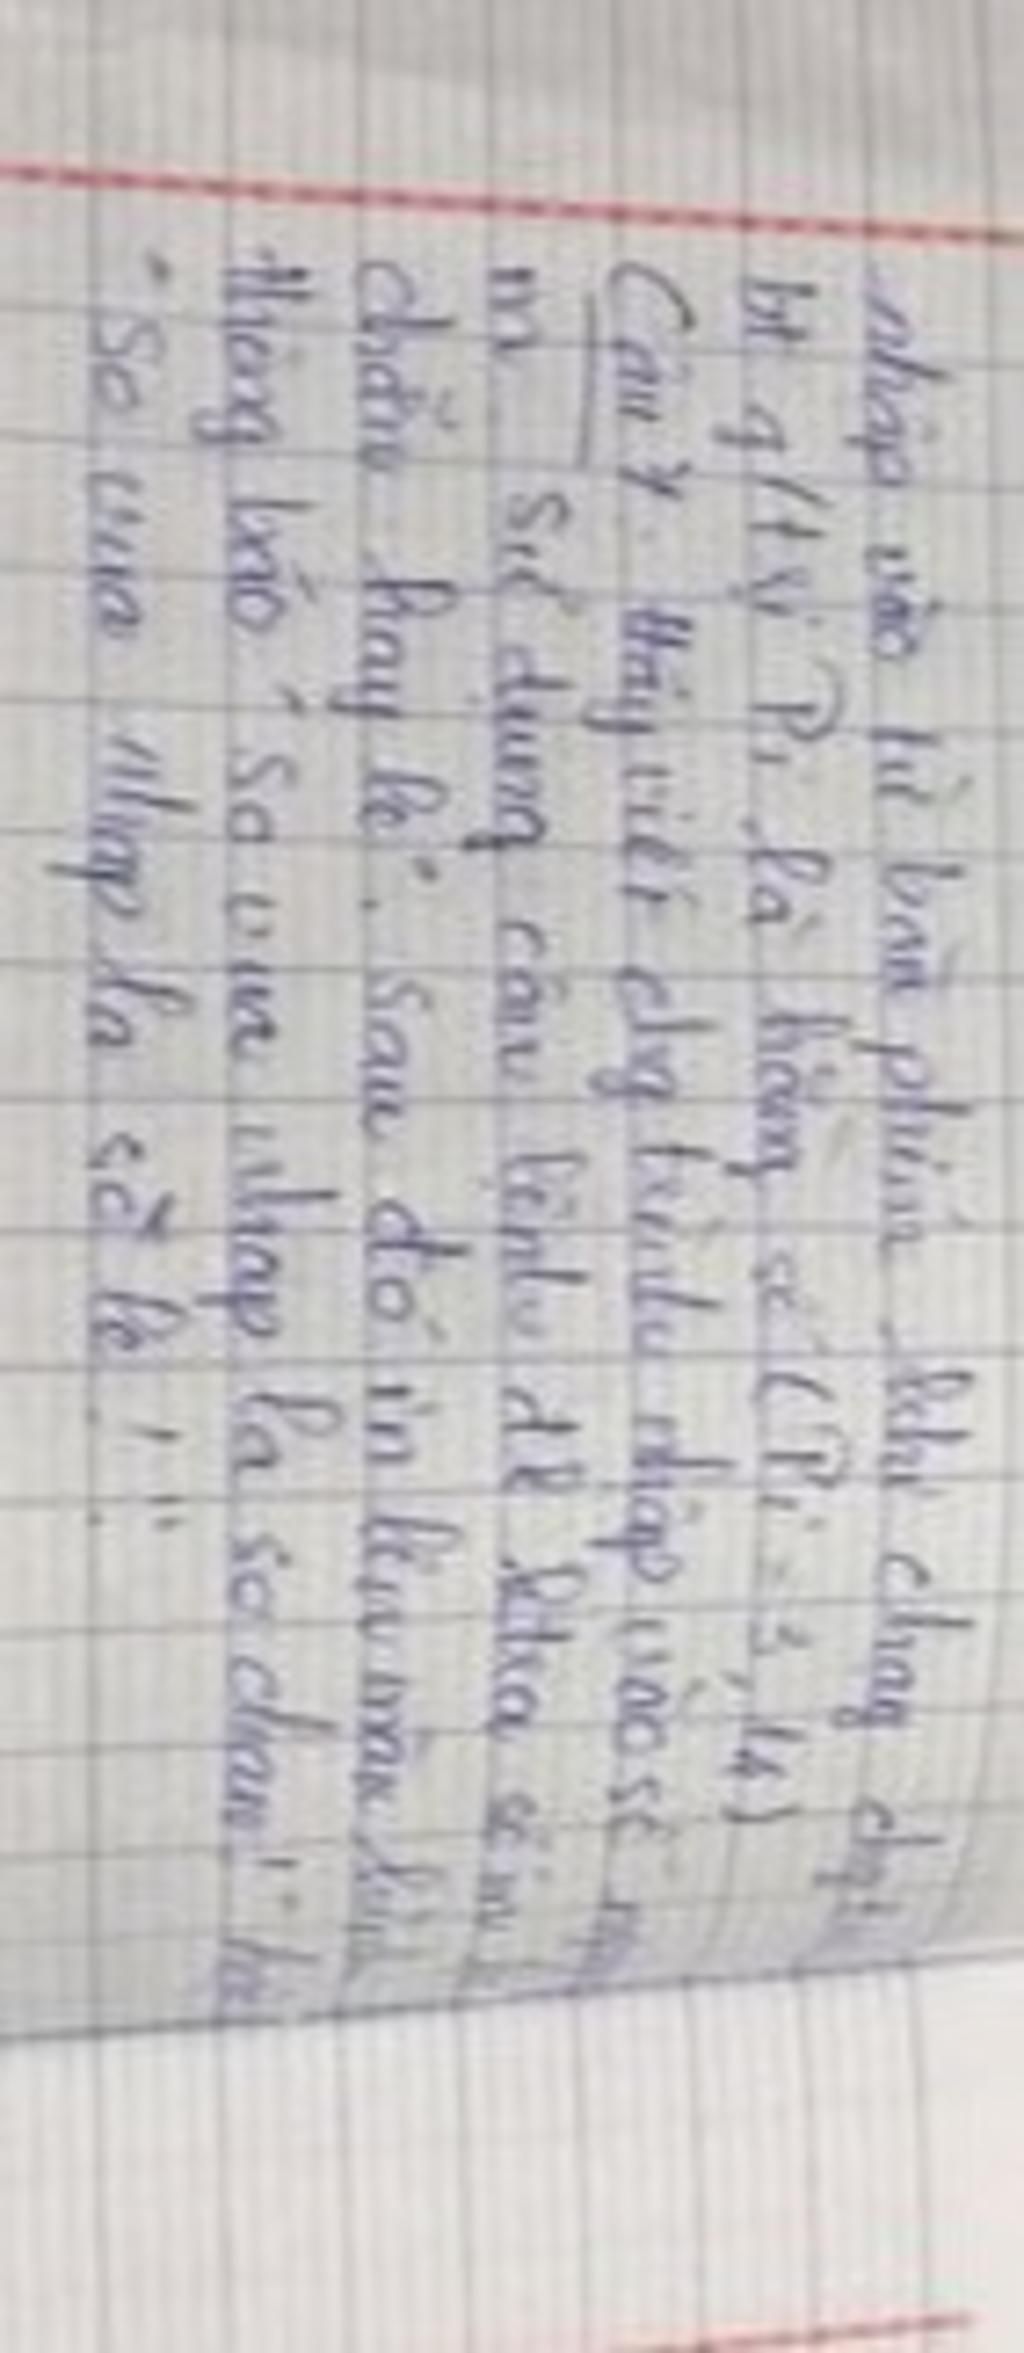 nhập vào từ bàn phím khi chạy
bt g/trị Pi là hằng số (Pi = 3,14)
Câu 4. Hãy viết ctrình nhập vào số
m sử dụng câu lệnh để ktra số m
chẵn hay lẻ". Sau đó in lên màn hình
thông báo "So vua nhap la so chan!"
"So vua nhap la số lẻ!".